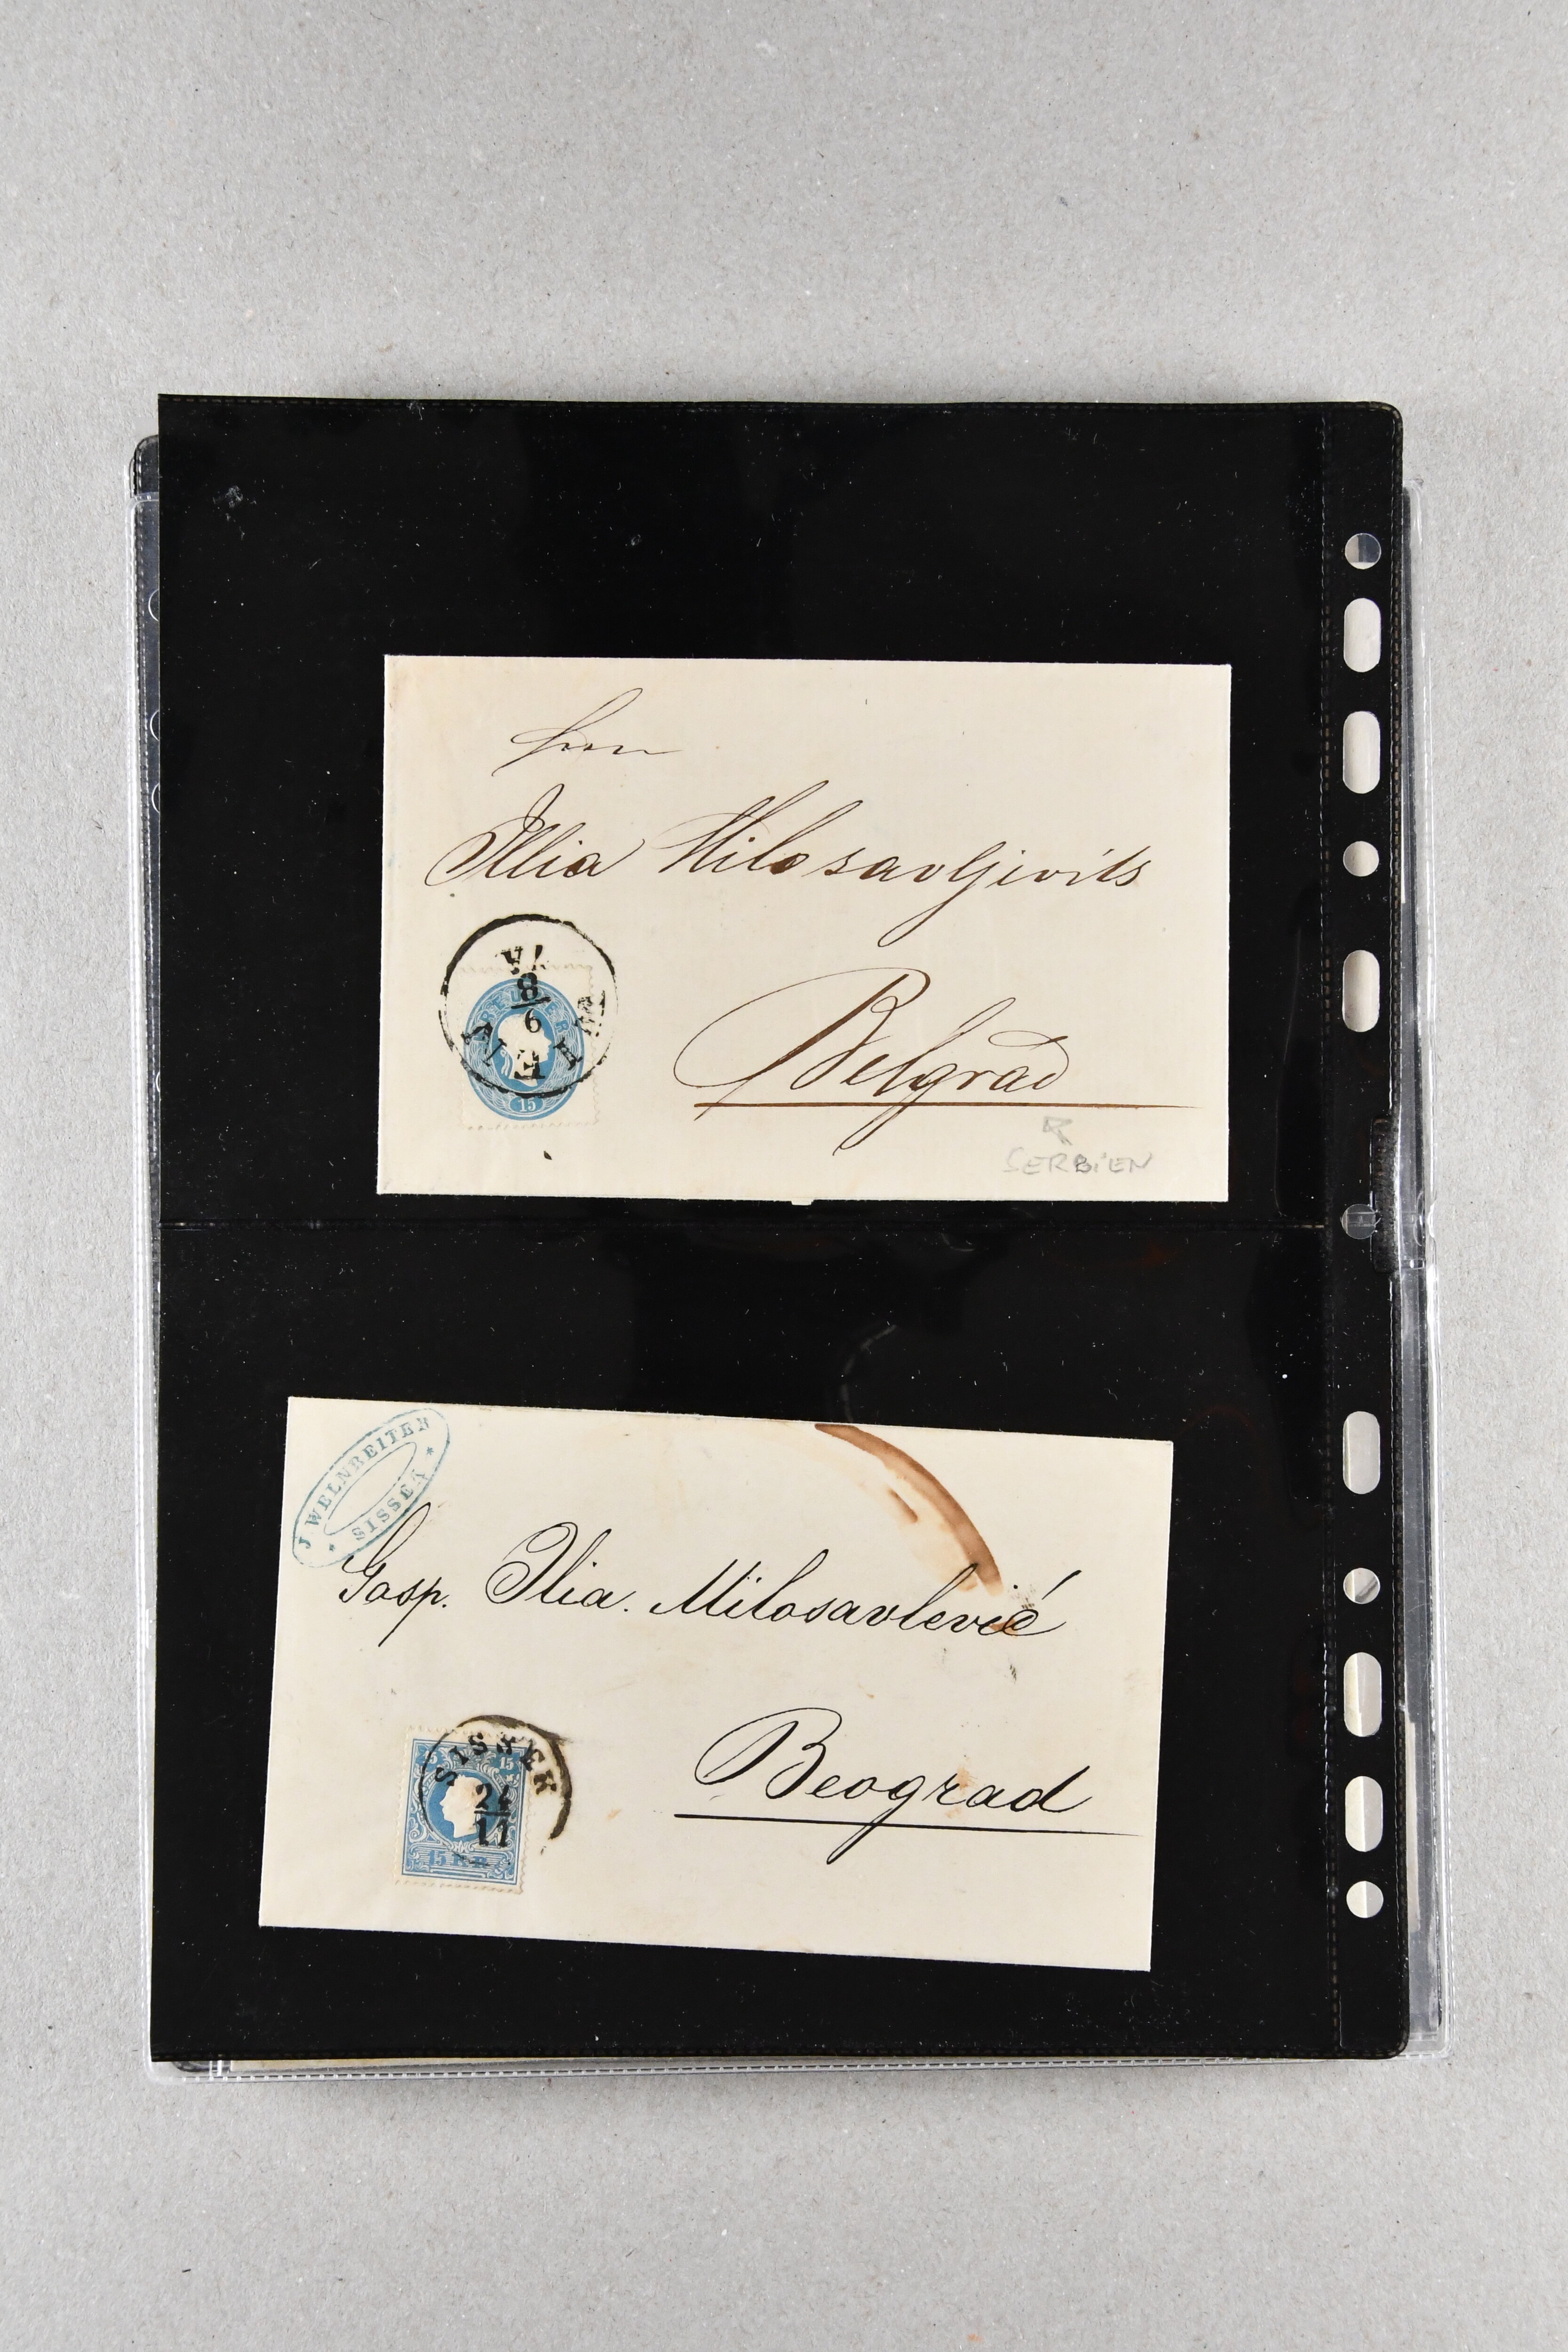 Herrn
Illia Milosavljevits
7A
8
6
15
Belgrad
SERBIEN
J WELNREITER
* SISSEK *
Gosp. Ilia. Milosavlević
SISSEK
24
11
15 15
15 KR
Beograd